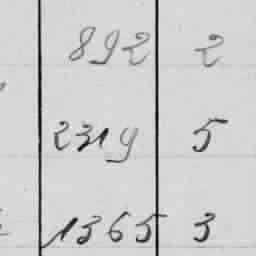 892 2
2319 5
1365 3